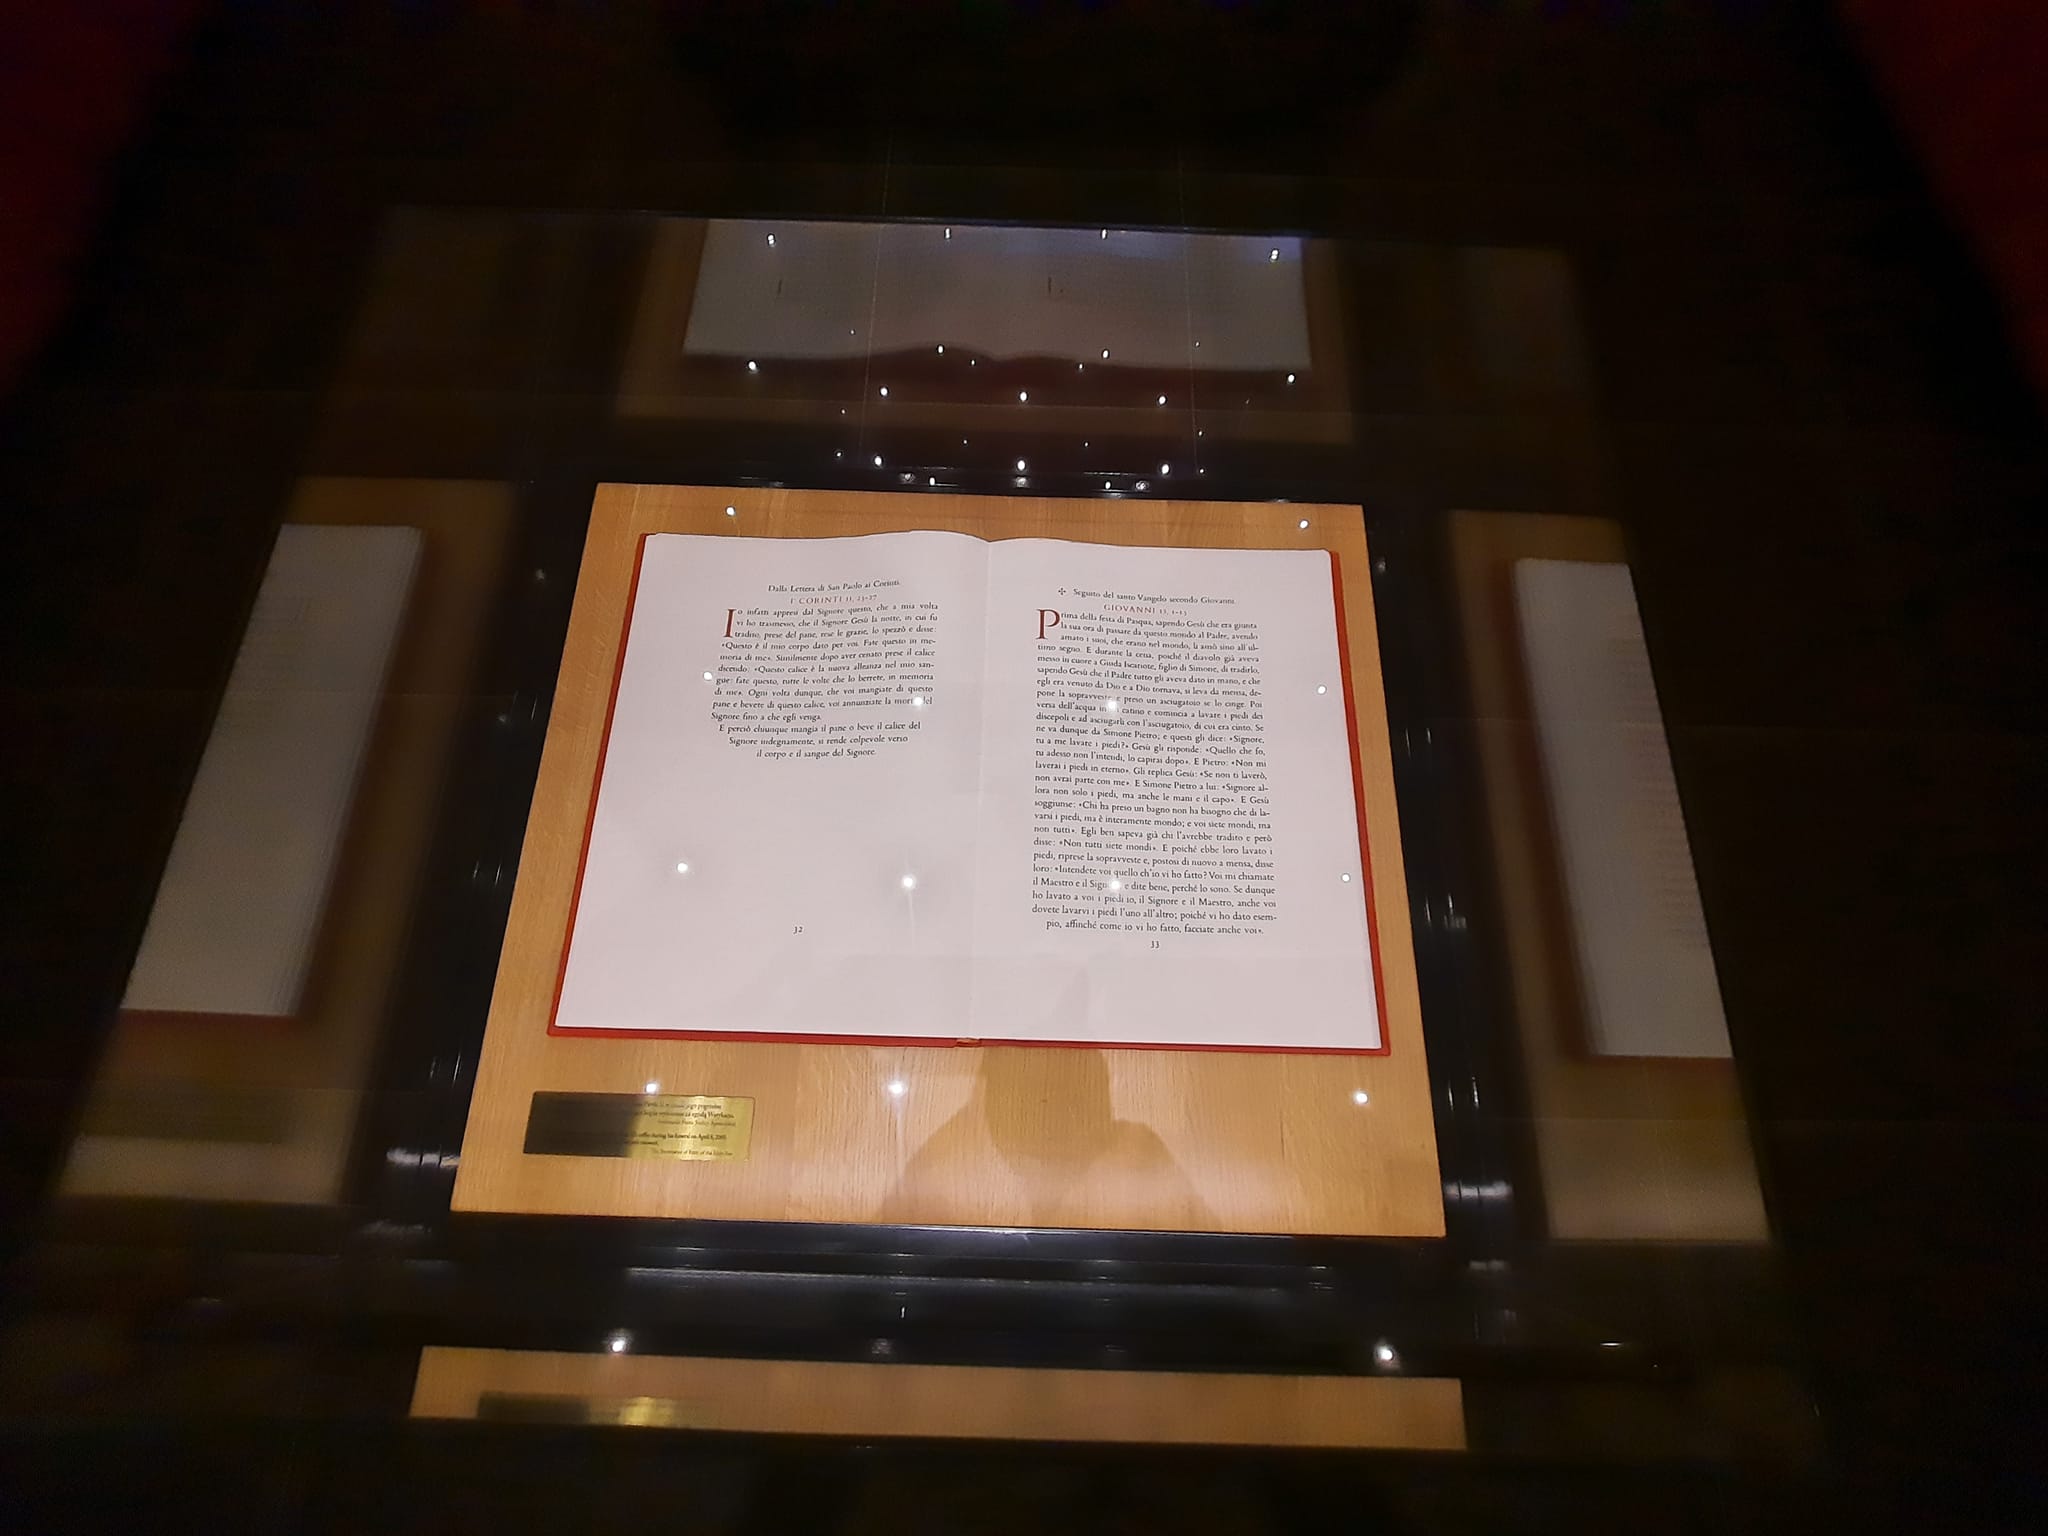 Dalla Lettera di San Paolo ai Corinti.
1ª CORINTI 11, 23-27
Io infatti appresi dal Signore questo, che a mia volta
vi ho trasmesso, che il Signore Gesù la notte, in cui fu
tradito, prese del pane, rese le grazie, lo spezzò e disse:
«Questo è il mio corpo dato per voi. Fate questo in me-
moria di me». Similmente dopo aver cenato prese il calice
dicendo: «Questo calice è la nuova alleanza nel mio san-
gue: fate questo, tutte le volte che lo berrete, in memoria
di me». Ogni volta dunque, che voi mangiate di questo
pane e bevete di questo calice, voi annunziate la morte del
Signore fino a che egli venga.
E perciò chiunque mangia il pane o beve il calice del
Signore indegnamente, si rende colpevole verso
il corpo e il sangue del Signore.
32
✣ Seguito del santo Vangelo secondo Giovanni.
GIOVANNI 13, 1-15
Prima della festa di Pasqua, sapendo Gesù che era giunta
la sua ora di passare da questo mondo al Padre, avendo
amato i suoi, che erano nel mondo, li amò sino all'ul-
timo segno. E durante la cena, poiché il diavolo già aveva
messo in cuore a Giuda Iscariote, figlio di Simone, di tradirlo,
sapendo Gesù che il Padre tutto gli aveva dato in mano, e che
egli era venuto da Dio e a Dio tornava, si leva da mensa, de-
pone la sopravveste e preso un asciugatoio se lo cinge. Poi
versa dell'acqua in un catino e comincia a lavare i piedi dei
discepoli e ad asciugarli con l'asciugatoio, di cui era cinto. Se
ne va dunque da Simone Pietro; e questi gli dice: «Signore,
tu a me lavare i piedi?» Gesù gli risponde: «Quello che fo,
tu adesso non l'intendi, lo capirai dopo». E Pietro: «Non mi
laverai i piedi in eterno». Gli replica Gesù: «Se non ti laverò,
non avrai parte con me». E Simone Pietro a lui: «Signore al-
lora non solo i piedi, ma anche le mani e il capo». E Gesù
soggiunse: «Chi ha preso un bagno non ha bisogno che di la-
varsi i piedi, ma è interamente mondo; e voi siete mondi, ma
non tutti». Egli ben sapeva già chi l'avrebbe tradito e però
disse: «Non tutti siete mondi». E poiché ebbe loro lavato i
piedi, riprese la sopravveste e, postosi di nuovo a mensa, disse
loro: «Intendete voi quello ch'io vi ho fatto? Voi mi chiamate
il Maestro e il Signore e dite bene, perché lo sono. Se dunque
ho lavato a voi i piedi io, il Signore e il Maestro, anche voi
dovete lavarvi i piedi l'uno all'altro; poiché vi ho dato esem-
pio, affinché come io vi ho fatto, facciate anche voi».
33
coffin during his funeral on April 8, 2005.